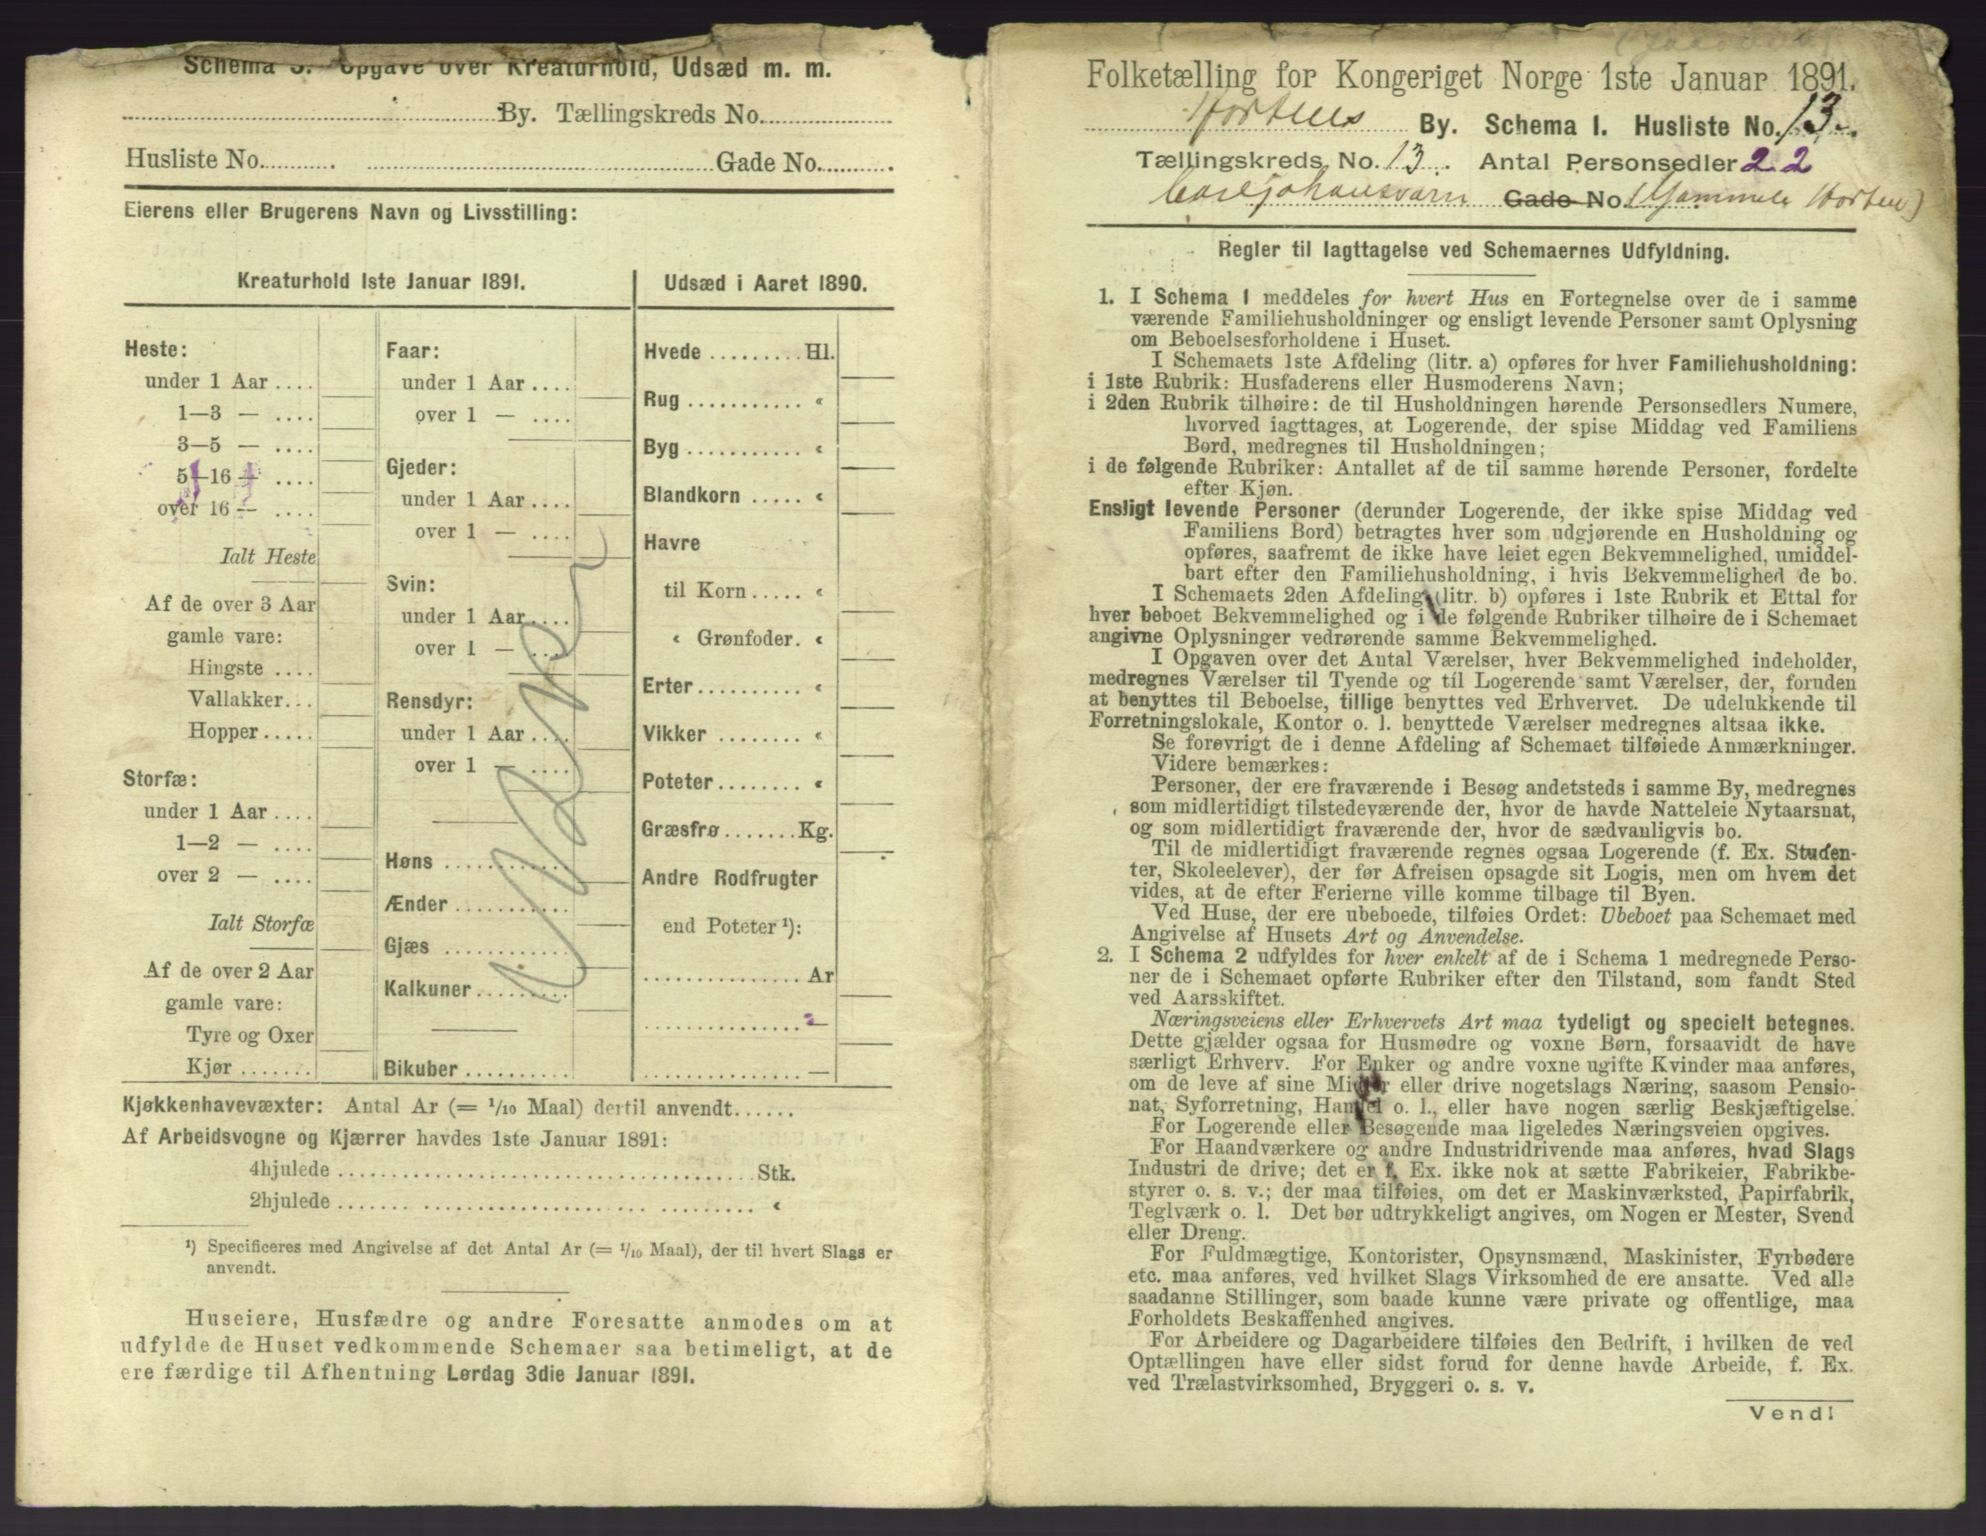 Schema 3. Opgave over Kreaturhold, Udsæd m. m.
By. Tællingskreds No.
Husliste No. Gade No.
Eierens eller Brugerens Navn og Livsstilling:
Kreaturhold 1ste Januar 1891.
Heste:
under 1 Aar
1—3 —
3—5 —
5—16 —
over 16 —
Ialt Heste
Af de over 3 Aar
gamle vare:
Hingste
Vallakker
Hopper
Storfæ:
under 1 Aar
1—2 —
over 2 —
Ialt Storfæ
Af de over 2 Aar
gamle vare:
Tyre og Oxer
Kjør
Faar:
under 1 Aar
over 1 —
Gjeder:
under 1 Aar
over 1 —
Svin:
under 1 Aar
over 1 —
Rensdyr:
under 1 Aar
over 1 —
Høns
Ænder
Gjæs
Kalkuner
Bikuber
Udsæd i Aaret 1890.
Hvede Hl.
Rug «
Byg «
Blandkorn «
Havre
til Korn «
« Grønfoder. «
Erter «
Vikker «
Poteter «
Græsfrø Kg.
Andre Rodfrugter
end Poteter ¹):
Ar
—
—
Kjøkkenhavevæxter: Antal Ar (= 1/10 Maal) dertil anvendt
Af Arbeidsvogne og Kjærrer havdes 1ste Januar 1891:
4hjulede Stk.
2hjulede «
¹) Specificeres med Angivelse af det Antal Ar (= 1/10 Maal), der til hvert Slags er
anvendt.
Huseiere, Husfædre og andre Foresatte anmodes om at
udfylde de Huset vedkommende Schemaer saa betimeligt, at de
ere færdige til Afhentning Lørdag 3die Januar 1891.
Folketælling for Kongeriget Norge 1ste Januar 1891.
Hortens By. Schema I. Husliste No. 13.
Tællingskreds No. 13. Antal Personsedler 22
Carljohansværn Gade No. (Gammel Horten)
Regler til Iagttagelse ved Schemaernes Udfyldning.
1. I Schema 1 meddeles for hvert Hus en Fortegnelse over de i samme
værende Familiehusholdninger og ensligt levende Personer samt Oplysning
om Beboelsesforholdene i Huset.
I Schemaets 1ste Afdeling (litr. a) opføres for hver Familiehusholdning:
i 1ste Rubrik: Husfaderens eller Husmoderens Navn;
i 2den Rubrik tilhøire: de til Husholdningen hørende Personsedlers Numere,
hvorved iagttages, at Logerende, der spise Middag ved Familiens
Bord, medregnes til Husholdningen;
i de følgende Rubriker: Antallet af de til samme hørende Personer, fordelte
efter Kjøn.
Ensligt levende Personer (derunder Logerende, der ikke spise Middag ved
Familiens Bord) betragtes hver som udgjørende en Husholdning og
opføres, saafremt de ikke have leiet egen Bekvemmelighed, umiddel-
bart efter den Familiehusholdning, i hvis Bekvemmelighed de bo.
I Schemaets 2den Afdeling (litr. b) opføres i 1ste Rubrik et Ettal for
hver beboet Bekvemmelighed og i de følgende Rubriker tilhøire de i Schemaet
angivne Oplysninger vedrørende samme Bekvemmelighed.
I Opgaven over det Antal Værelser, hver Bekvemmelighed indeholder,
medregnes Værelser til Tyende og til Logerende samt Værelser, der, foruden
at benyttes til Beboelse, tillige benyttes ved Erhvervet. De udelukkende til
Forretningslokale, Kontor o. l. benyttede Værelser medregnes altsaa ikke.
Se forøvrigt de i denne Afdeling af Schemaet tilføiede Anmærkninger.
Videre bemærkes:
Personer, der ere fraværende i Besøg andetsteds i samme By, medregnes
som midlertidigt tilstedeværende der, hvor de havde Natteleie Nytaarsnat,
og som midlertidigt fraværende der, hvor de sædvanligvis bo.
Til de midlertidigt fraværende regnes ogsaa Logerende (f. Ex. Studen-
ter, Skoleelever), der før Afreisen opsagde sit Logis, men om hvem det
vides, at de efter Ferierne ville komme tilbage til Byen.
Ved Huse, der ere ubeboede, tilføies Ordet: Ubeboet paa Schemaet med
Angivelse af Husets Art og Anvendelse.
2. I Schema 2 udfyldes for hver enkelt af de i Schema 1 medregnede Perso-
ner de i Schemaet opførte Rubriker efter den Tilstand, som fandt Sted
ved Aarsskiftet.
Næringsveiens eller Erhvervets Art maa tydeligt og specielt betegnes.
Dette gjælder ogsaa for Husmødre og voxne Børn, forsaavidt de have
særligt Erhverv. For Enker og andre voxne ugifte Kvinder maa anføres,
om de leve af sine Midler eller drive nogetslags Næring, saasom Pensio-
nat, Syforretning, Handel o. l., eller have nogen særlig Beskjæftigelse.
For Logerende eller Besøgende maa ligeledes Næringsveien opgives.
For Haandværkere og andre Industridrivende maa anføres, hvad Slags
Industri de drive; det er f. Ex. ikke nok at sætte Fabrikeier, Fabrikbe-
styrer o. s. v.; der maa tilføies, om det er Maskinværksted, Papirfabrik,
Teglværk o. l. Det bør udtrykkeligt angives, om Nogen er Mester, Svend
eller Dreng.
For Fuldmægtige, Kontorister, Opsynsmænd, Maskinister, Fyrbødere
etc. maa anføres, ved hvilket Slags Virksomhed de ere ansatte. Ved alle
saadanne Stillinger, som baade kunne være private og offentlige, maa
Forholdets Beskaffenhed angives.
For Arbeidere og Dagarbeidere tilføies den Bedrift, i hvilken de ved
Optællingen have eller sidst forud for denne havde Arbeide, f. Ex.
ved Trælastvirksomhed, Bryggeri o. s. v.
Vend!